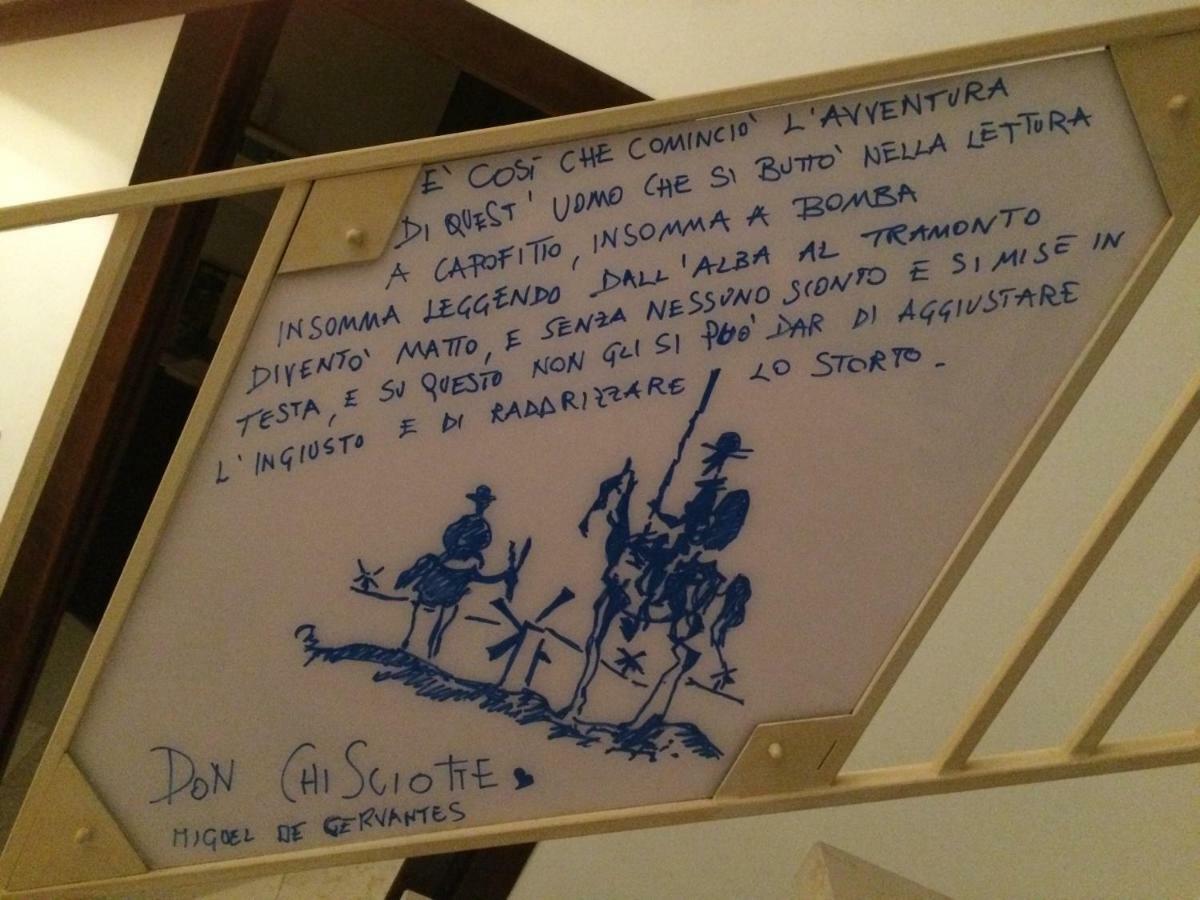 E' COSÍ CHE COMINCIO' L'AVVENTURA
DI QUEST' UOMO CHE SI BUTTO' NELLA LETTURA
A CAPOFITTO, INSOMMA A BOMBA
INSOMMA LEGGENDO DALL'ALBA AL TRAMONTO
DIVENTO' MATTO, E SENZA NESSUNO SCONTO E SI MISE IN
TESTA, E SU QUESTO NON GLI SI PUO' DAR DI AGGIUSTARE
L'INGIUSTO E DI RADDRIZZARE LO STORTO.
DON CHISCIOTTE
MIGUEL DE CERVANTES